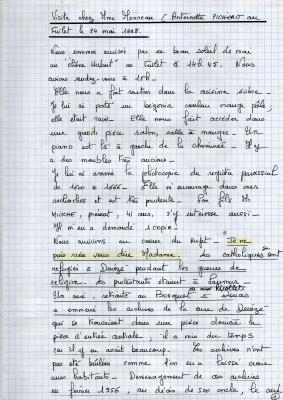 Visite chez Mme Monneau (Antoinette PICHERIT au
Fuilet le 24 mai 1988.
Nous sommes arrivés par un beau soleil de mai
au "chêne Hubert" au Fuilet à 14h 45. Nous
avions rendez-vous à 15h.
Elle nous a fait rentrer dans la cuisine sobre.
Je lui ai porté un bégonia couleur orange pâle,
elle était ravie. Elle nous fait accéder dans
une grande pièce salon, salle à manger. Un
piano est là à gauche de la cheminée. Il y
a des meubles très anciens.
Je lui ai amené la photocopie du registre paroissial
de 1600 à 1666. Elle m'encourage dans mes
recherches et est très prudente. Son fils Mr
MIOCHE, présent, 41 ans, s'y intéresse aussi.
Il m'en a demandé 1 copie.
Nous arrivons au coeur du sujet. "Je ne
puis rien vous dire Madame. Les catholiques se sont
réfugiés à pendant les guerres de
religion. Les protestants étaient à
Un ami, retraité au
a emmené les archives de la cure de
qui se trouvaient dans une pièce derrière la
pièce d'entrée centrale, il a mis du temps
car il y en avait beaucoup. Les archives n'ont
pas été brûlées comme l'on en a laissé croire
aux habitants. Déménagement de ces archives
en février 1956, au décès de son oncle, le curé